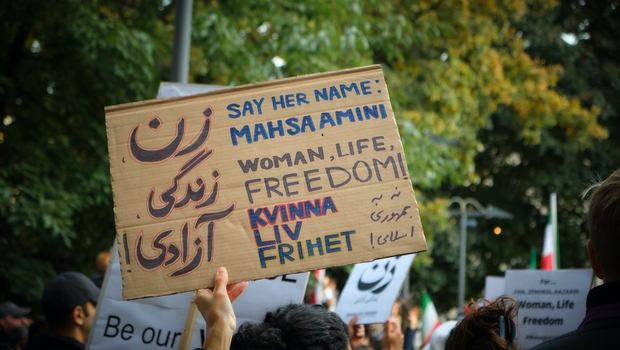 زن
زندگی
آزادی!
SAY HER NAME:
MAHSA AMINI
WOMAN, LIFE,
FREEDOM!
KVINNA
LIV
FRIHET
نه به
جمهوری
اسلامی!
Be our
زن
Woman, Life
Freedom